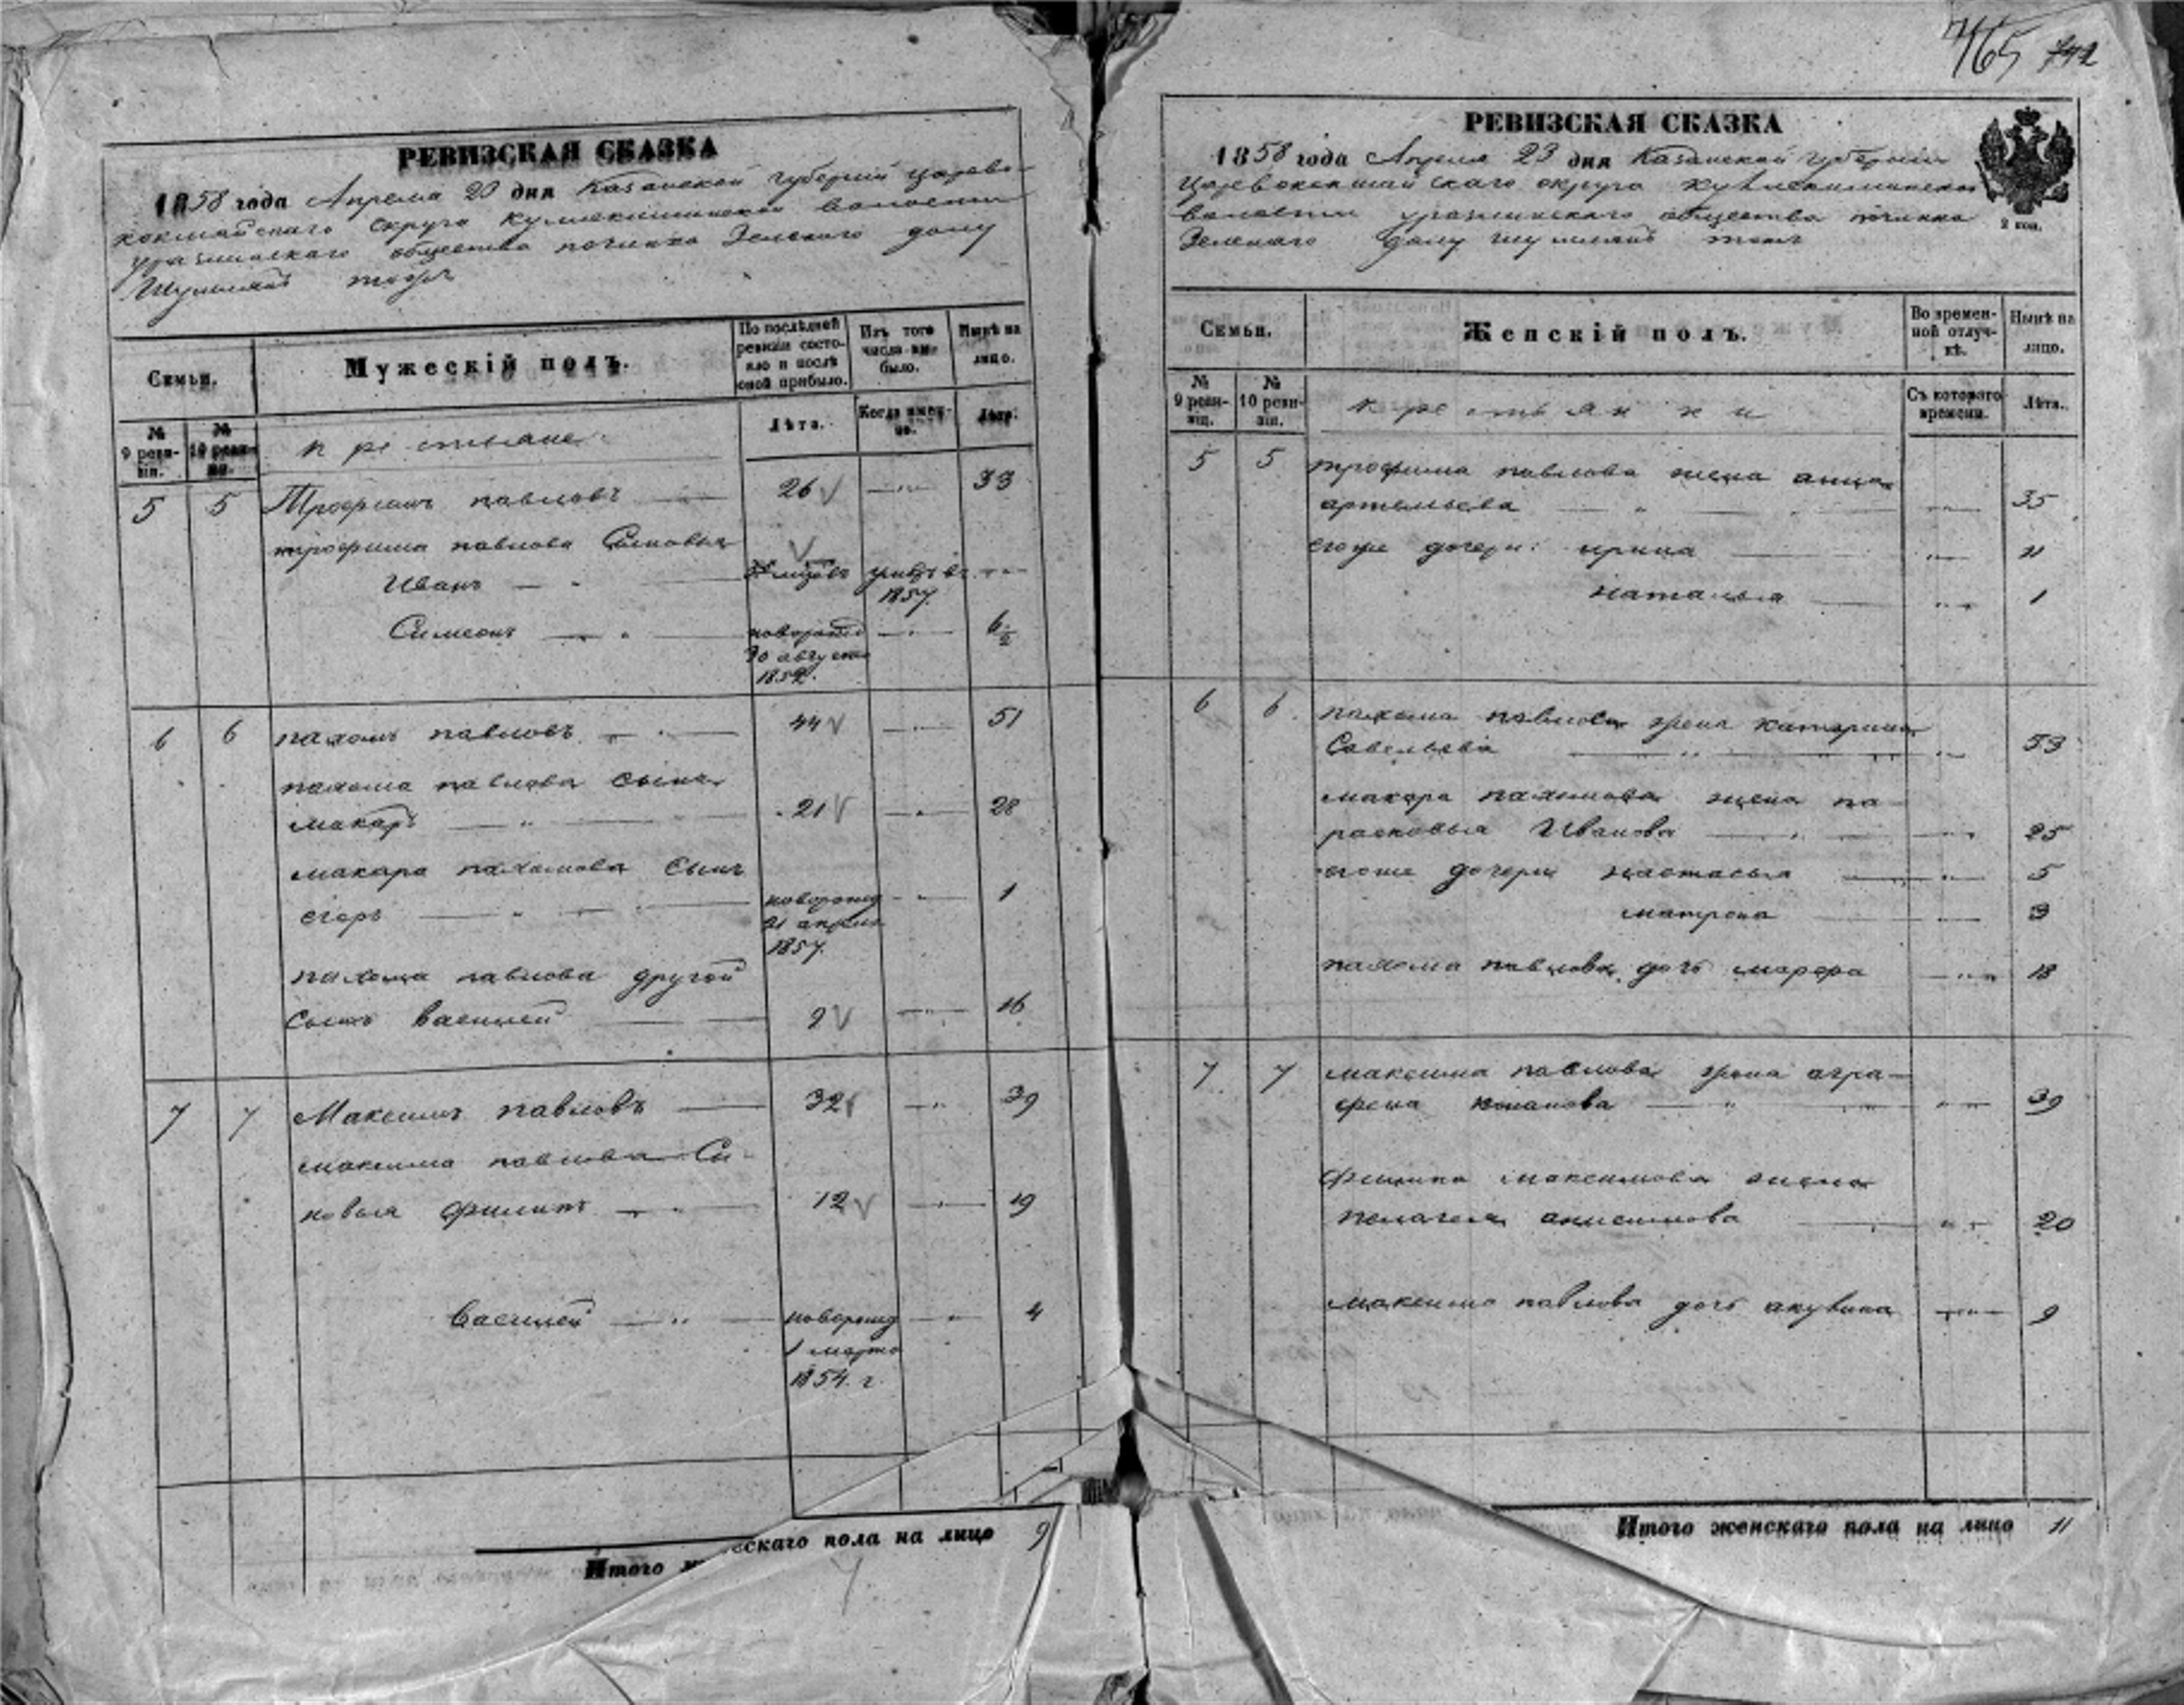 765 742
РЕВИЗСКАЯ СКАЗКА
1858 года Апреля 23 дня Казанской губернии Царево-
кокшайскаго округа Кулле
общества починка Зеленаго
Семьи.
Мужескій полъ.
По послѣдней ревизіи состояло и послѣ оной прибыло.
Изъ того числа выбыло.
Нынѣ на лицо.
№ 9 ревизіи.
№ 10 ревизіи.
крестьяне
Лѣта.
Когда именно.
Лѣта.
5 5 Трофимъ павловъ 26 33
трофима павлова Сыновья
Иванъ 1857.
Симеонъ новорожд 6½
30 августа
1852.
6 6 пахомъ павловъ 44 51
пахома павлова сынъ
макаръ 21 28
макара пахомова сынъ
егоръ новорожд 1
21 апреля
1857.
пахома павлова другой
сынъ василей 9 16
7 7 Максимъ павловъ 32 39
максима павлова Сы-
новья филипъ 12 19
Василей новорожд 4
1 марта
1854. г.
Итого скаго пола на лицо 9
РЕВИЗСКАЯ СКАЗКА
1858 года Апреля 23 дня Казанской губернии
Царевококшайскаго округа
волости общества починка
Зеленаго
2 коп.
Семьи.
Женскій полъ.
Во временной отлучкѣ.
Нынѣ на лицо.
№ 9 ревизіи.
№ 10 ревизіи.
крестьянки
Съ котораго времени.
Лѣта.
5 5 трофима павлова жена анна
артемьева 35
егоже дочери: ирина 11
наталья 1
6 6 пахома павлова жена катерина
Савельева 53
макара пахомова жена па-
расковья Иванова 25
егоже дочери настасья 5
матрена 3
пахома павлова дочь марфа 18
7 7 максима павлова жена агра-
фена 39
филипа максимова жена
пелагея анисимова 20
максима павлова дочь акулина 9
Итого женскаго пола на лицо 11